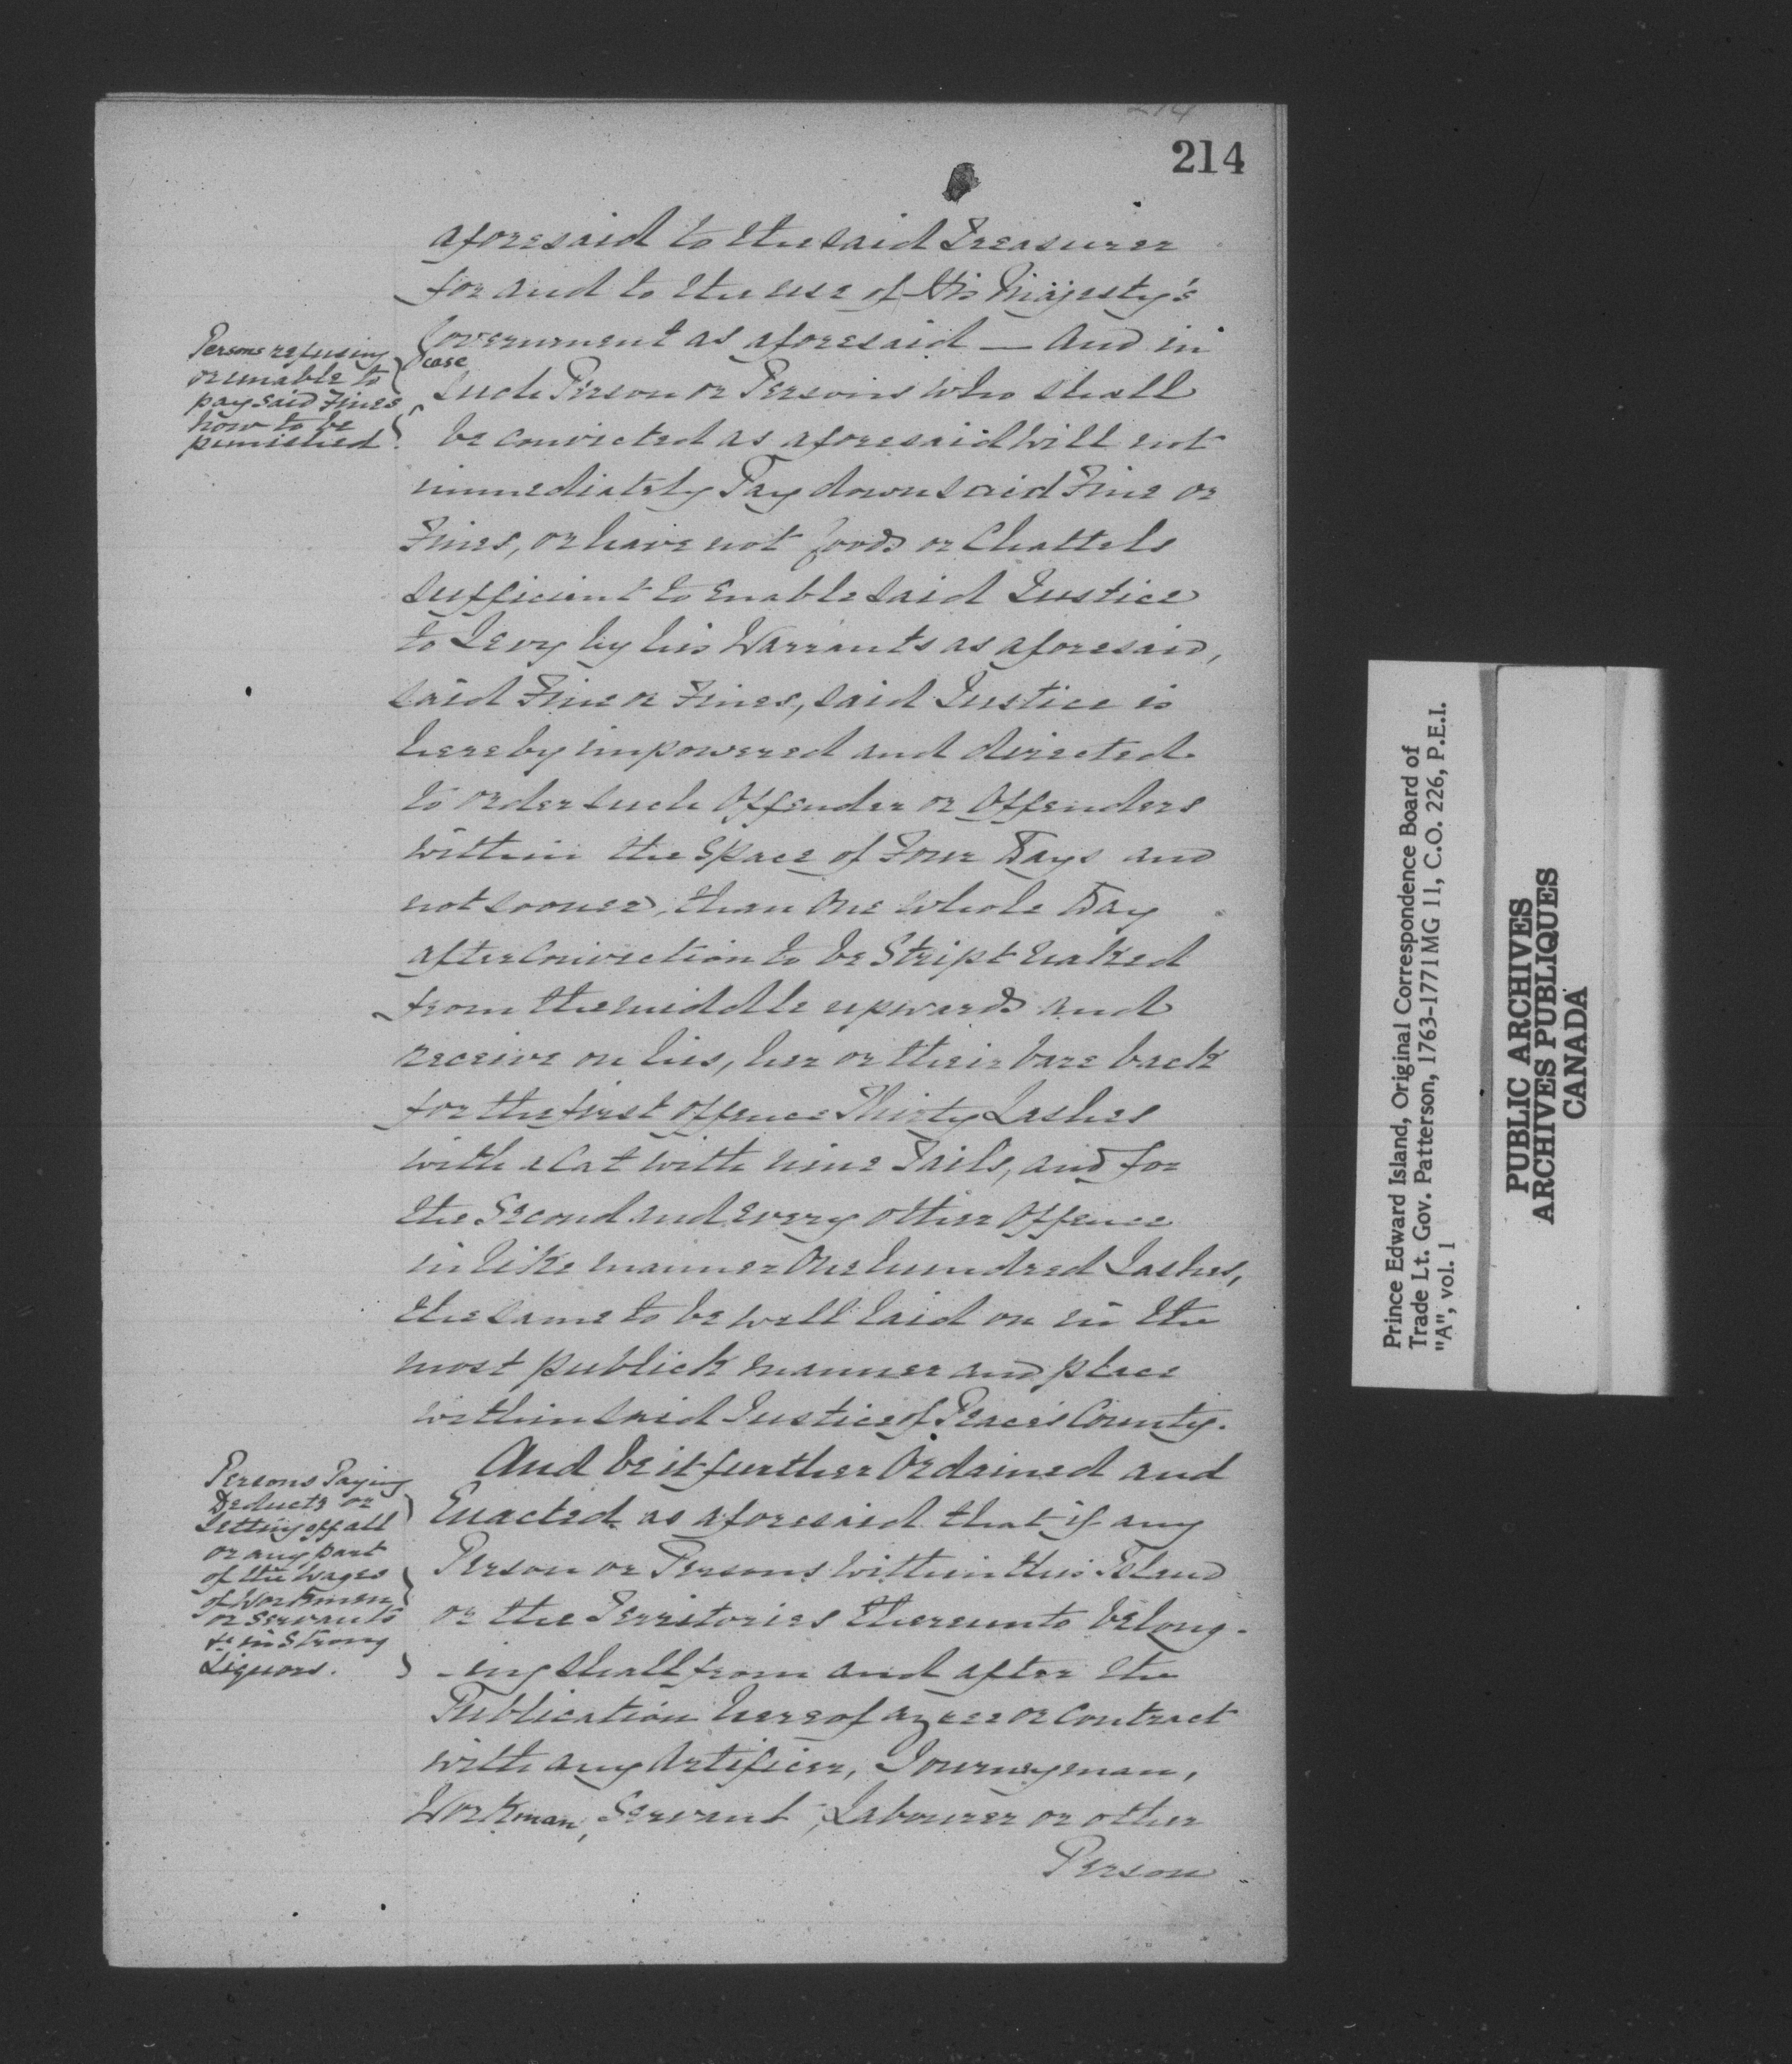 214
214
aforesaid to the said Treasurer
for and to the use of His Majesty's
Government as aforesaid — And in
case
such Person or Persons who shall
be convicted as aforesaid will not
immediately Pay down said Fine or
Fines, or have not Goods or Chattels
sufficient to Enable said Justice
to Levy by his Warrants as aforesaid,
said Fine or Fines, said Justice is
hereby impowered and directed
to order such Offender or Offenders
within the Space of Four Days and
not sooner, than One whole Day
after Conviction to be Stript naked
from the middle upwards and
receive on his, her or their bare back
for the first Offence Thirty Lashes
with a Cat with nine Tails, and for
the Second and every other Offence
in like manner One hundred Lashes,
the same to be well laid on in the
most publick manner and place
within said Justice of Peace's County.
And be it further Ordained and
Enacted as aforesaid that if any
Person or Persons within this Island
or the Territories thereunto belong-
-ing shall from and after the
Publication hereof agree or Contract
with any Artificer, Journeyman,
Workman, Servant, Labourer or other
Person
Persons refusing
or unable to
pay said Fines
how to be
punished
Persons Paying
Deducts or
Setting off all
or any part
of the Wages
of Workmen
or Servants
&c in Strong
Liquors.
Prince Edward Island, Original Correspondence Board of
Trade Lt. Gov. Patterson, 1763-1771 MG 11, C.O. 226, P.E.I.
"A", vol. 1
PUBLIC ARCHIVES
ARCHIVES PUBLIQUES
CANADA